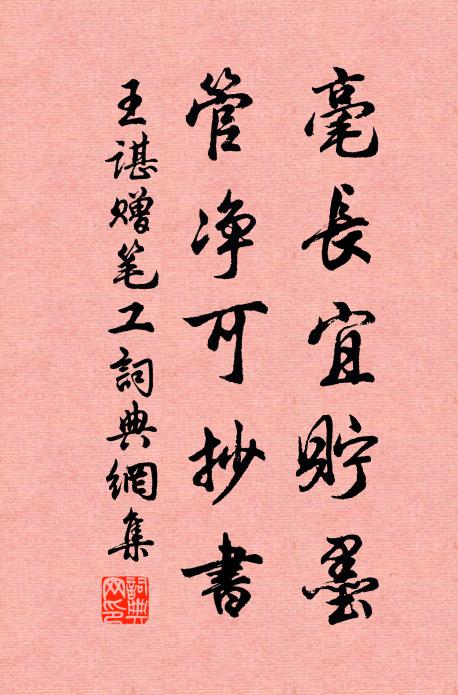 毫長宜貯墨
管净可抄書
王諶赠笔工詞典網集
詞典网印